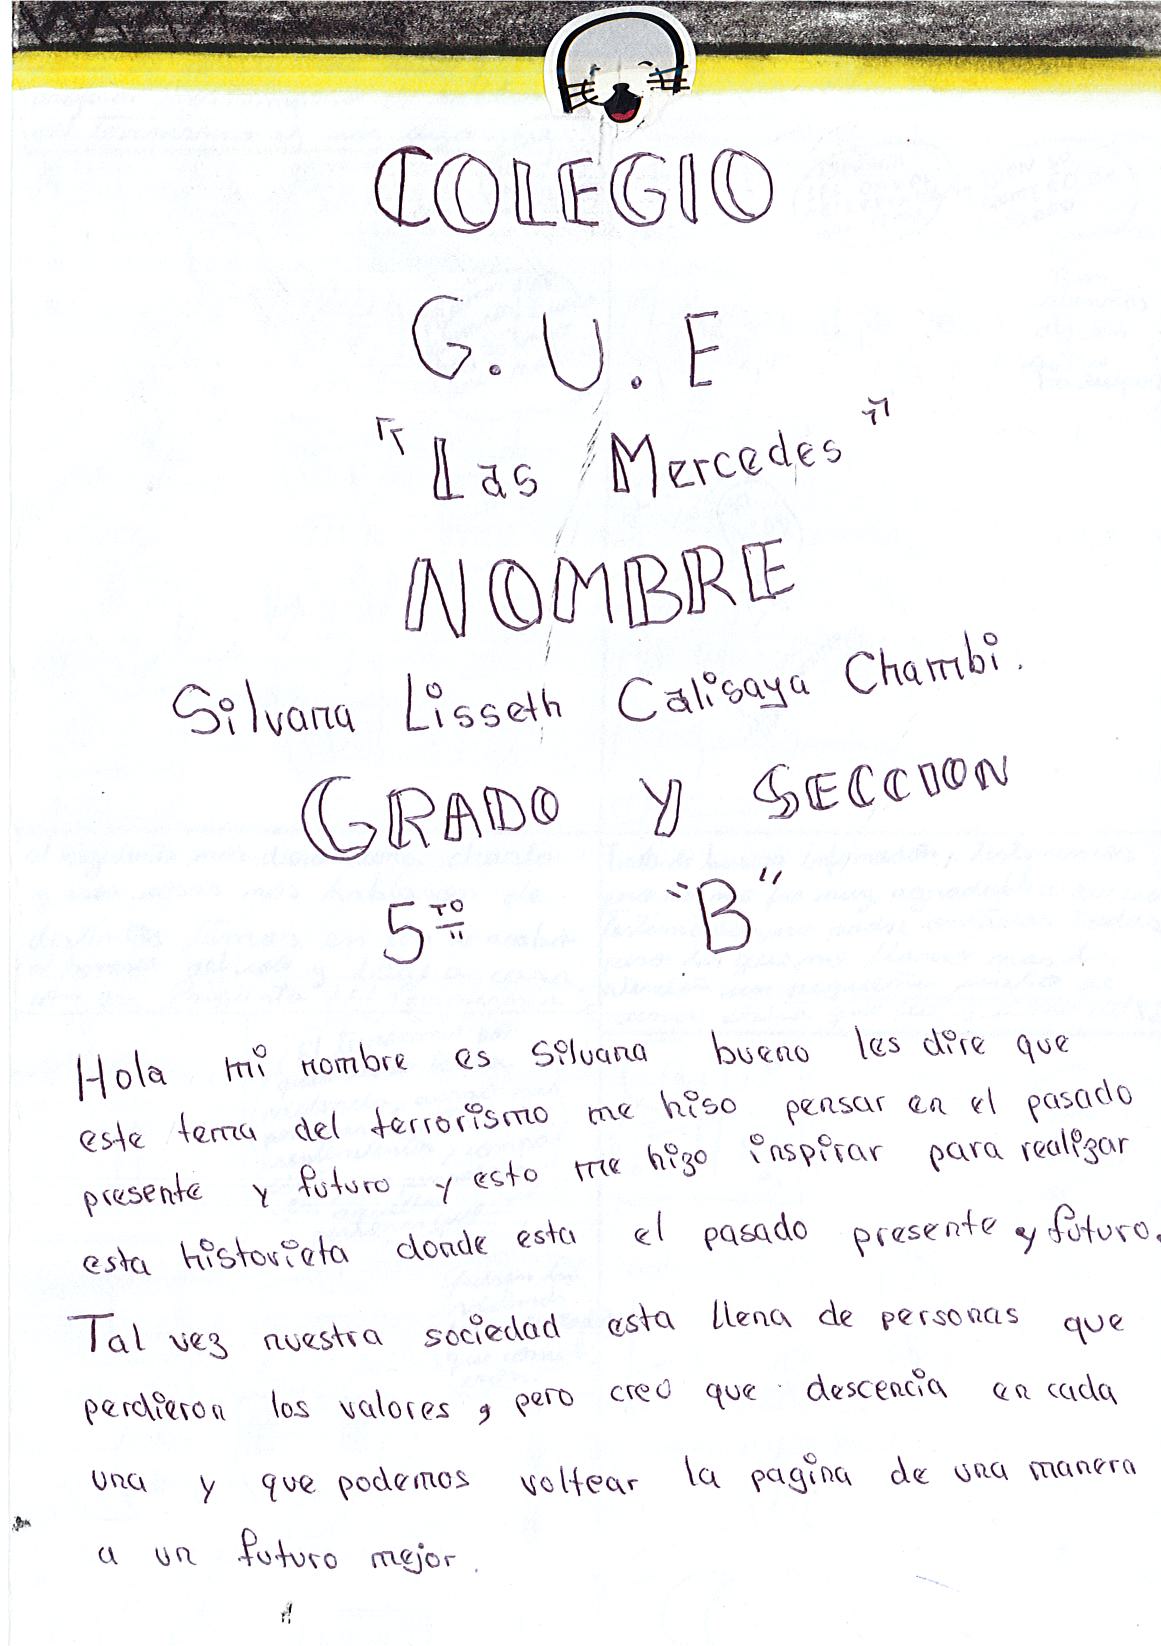 COLEGIO
G.U.E
"Las Mercedes"
NOMBRE
Silvana Lisseth Calisaya Chambi.
GRADO Y SECCION
5TO "B"
Hola mi nombre es Silvana bueno les dire que
este tema del terrorismo me hiso pensar en el pasado
presente y futuro y esto me hizo inspirar para realizar
esta historieta donde esta el pasado presente y futuro.
Tal vez nuestra sociedad esta llena de personas que
perdieron los valores, pero creo que descencia en cada
una y que podemos voltear la pagina de una manera
a un futuro mejor.